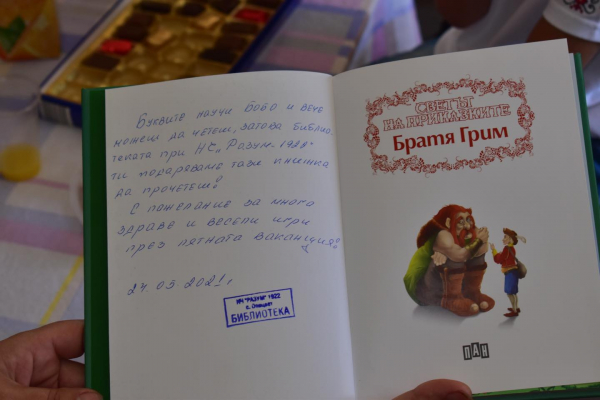 Буквите научи Бобо и вече
можеш да четеш, затова библио-
теката при НЧ „Разум - 1922"
ти подаряваме тази книжка
да прочетеш!
С пожелание за много
здраве и весели игри
през лятната ваканция!
24.05 2021г.
НЧ "РАЗУМ" 1922
БИБЛИОТЕКА
СВЕТЪТ
НА ПРИКАЗКИТЕ
Братя Грим
ПАН